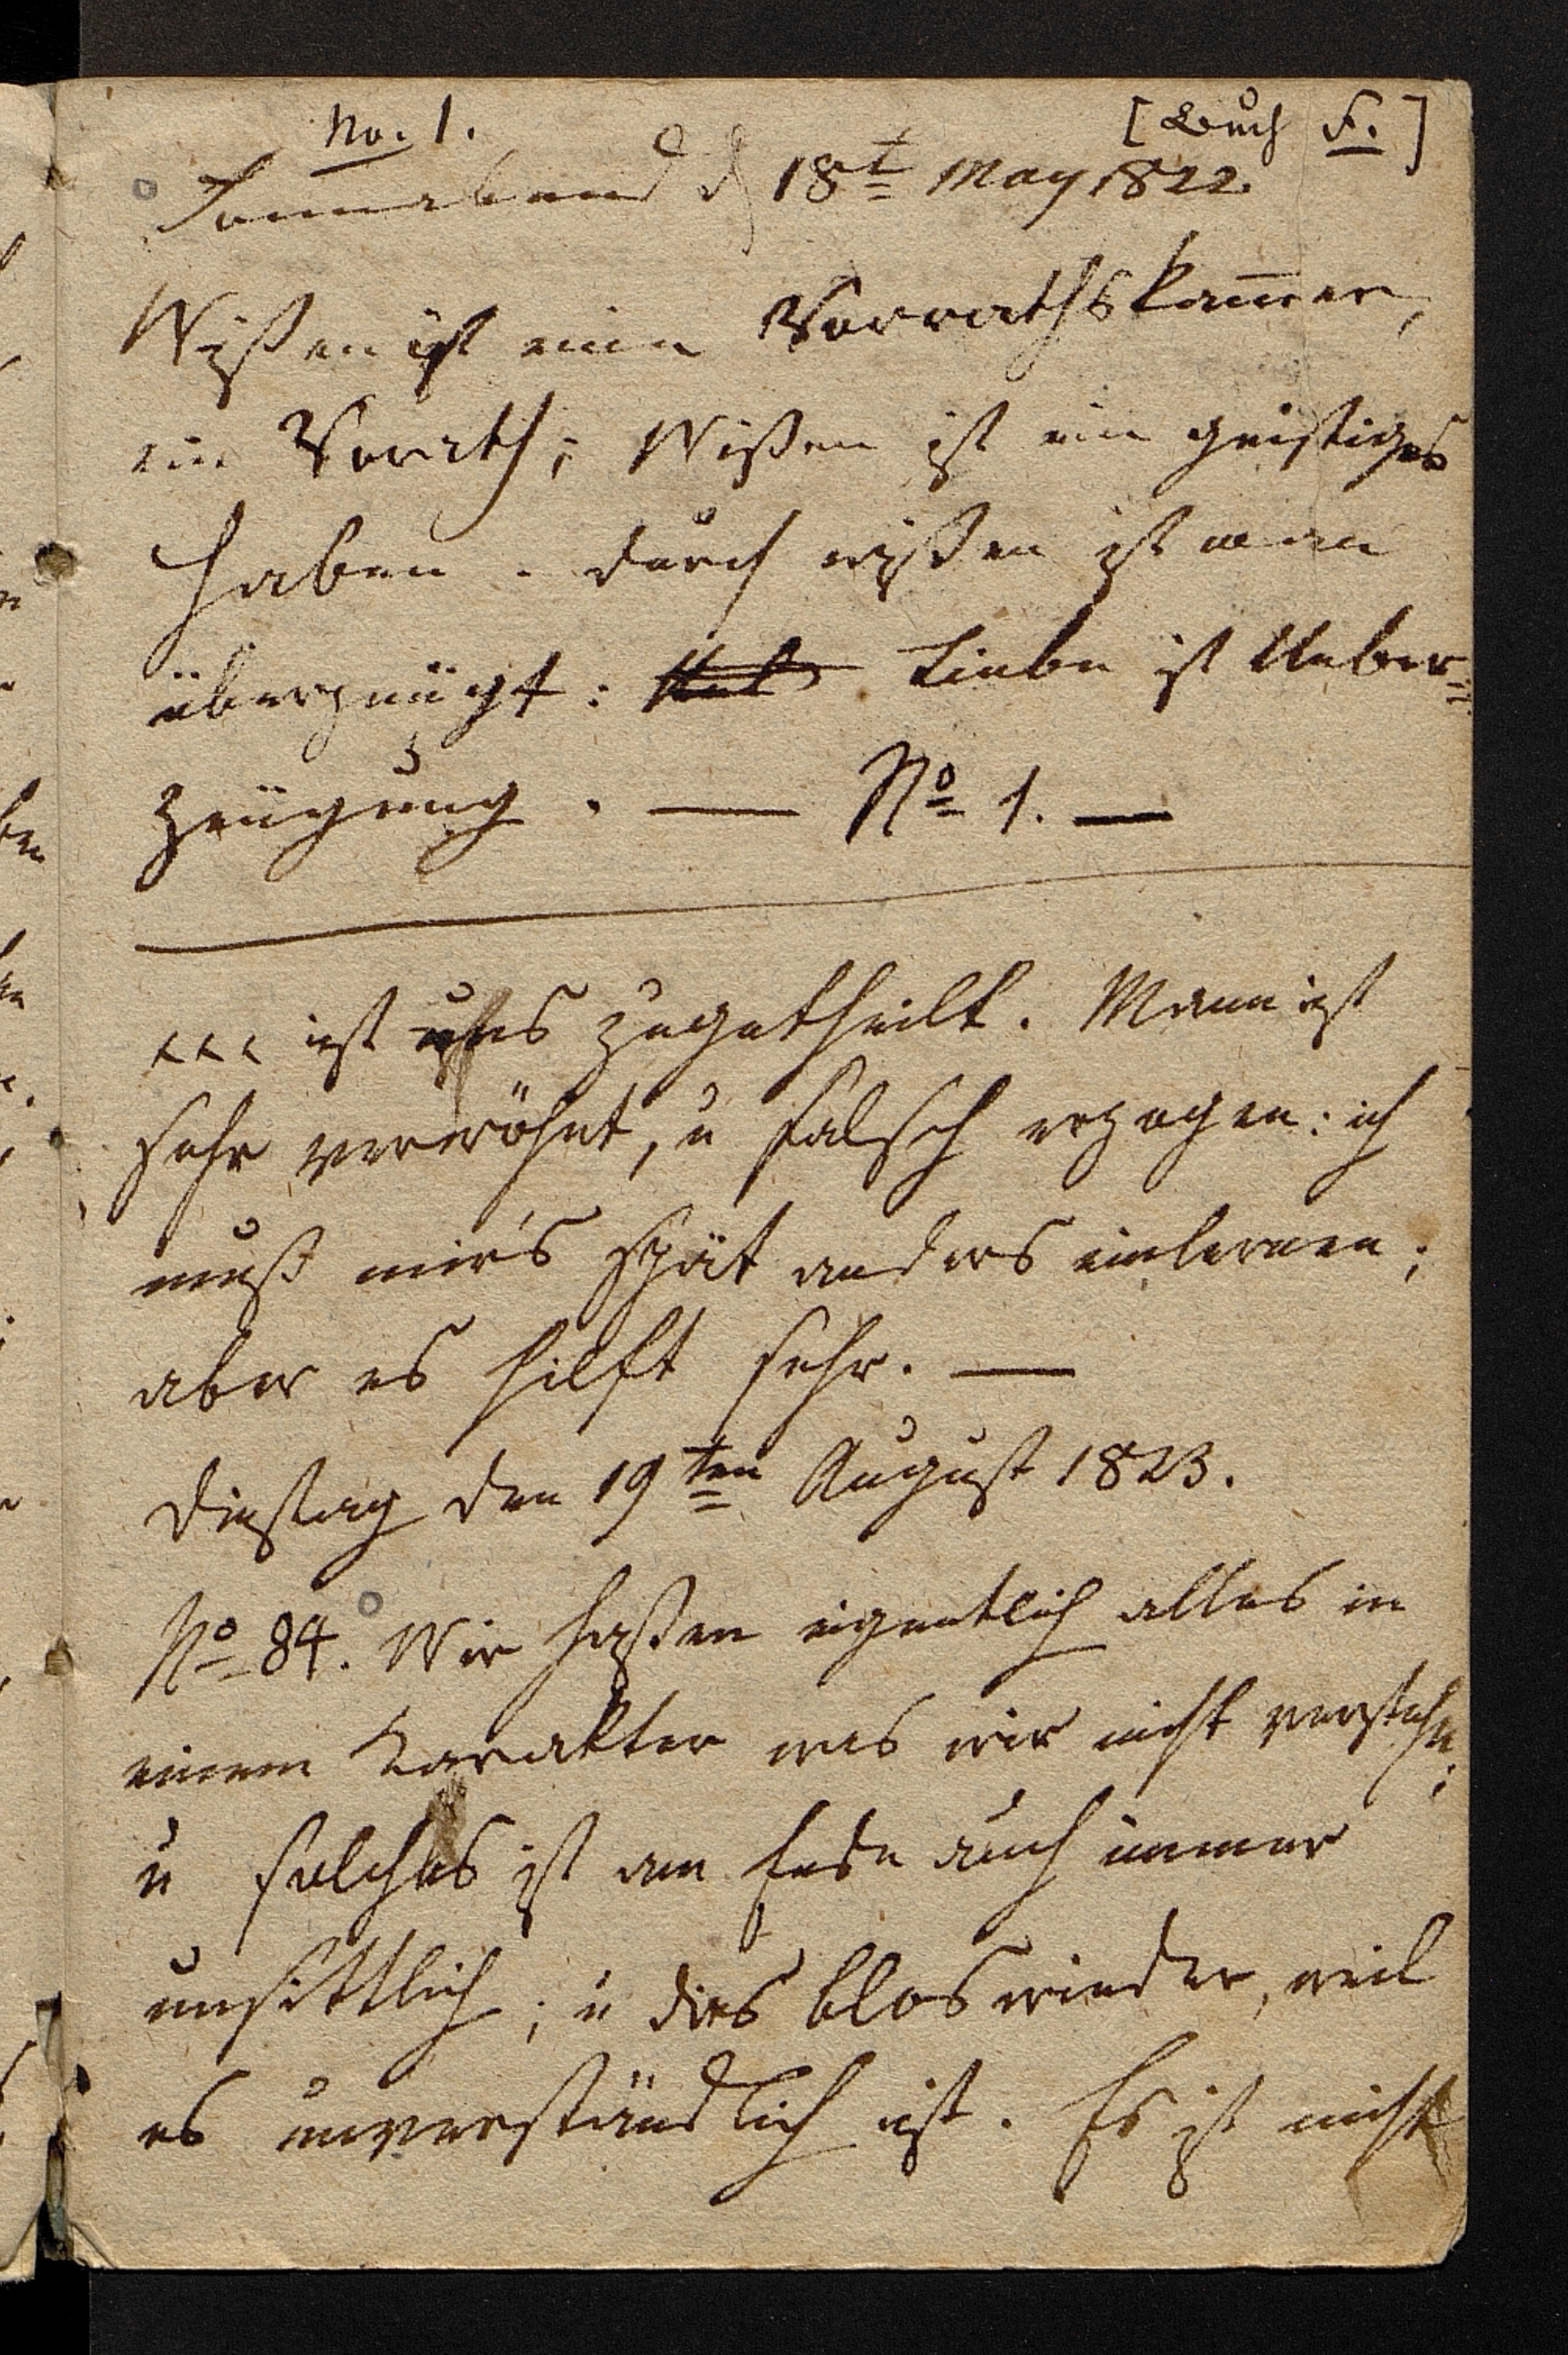 No. 1. [Buch F.]
Sonnabend d 18t May 1822.
Wißen ist eine Vorrathskam̅er,
ein Vorath; Wißen ist ein geistiges
haben. durch wißen ist man
überzeügt: Liebe ist Ueber=
zeügung. — No 1. —
xxx ist uns zugetheilt. Man ist
sehr verwöhnt, u falsch erzogen: ich
muß mir's spät anders einlernen;
aber es hilft sehr. —
Dinstag den 19ten August 1823.
No 84. Wir haßen eigentlich alles in
einem Karakter was wir nicht verstehn;
u solches ist am Ende auch immer
unsittlich; u dies blos wieder, weil
es unverständlich ist. Es ist nicht